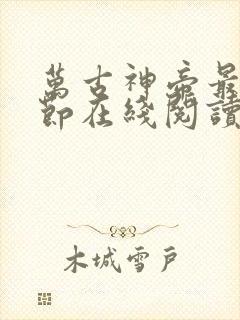 萬古神帝最
節在綫閱讀
木城雪戶